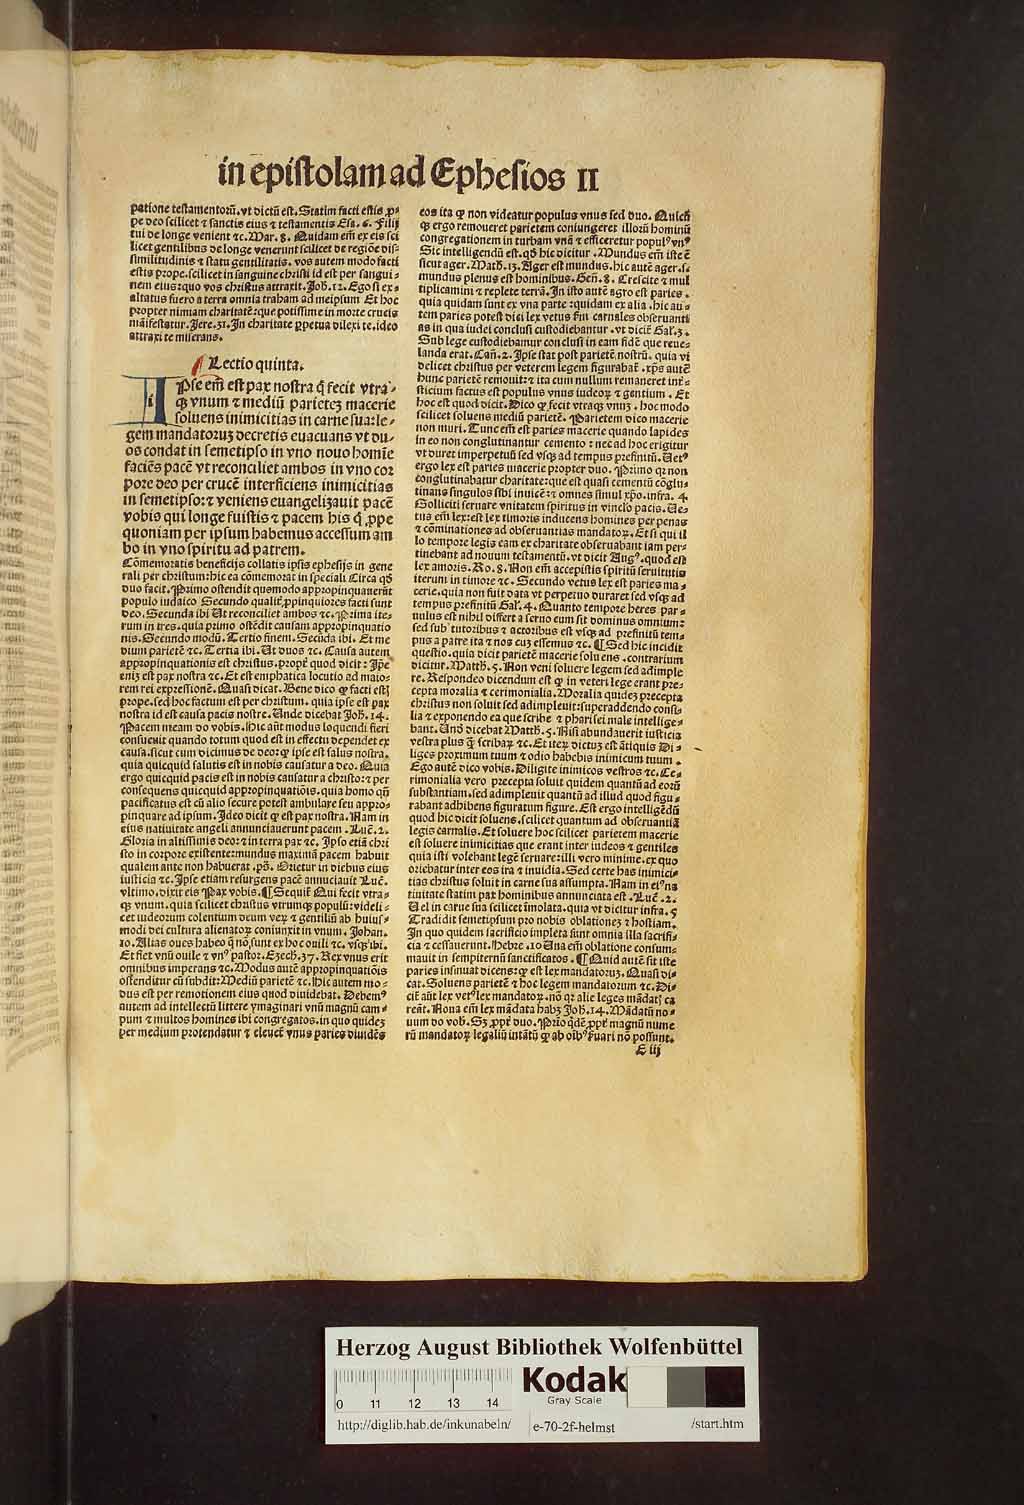 in epistolam ad Ephesios II
patione testamentorũ. vt dictũ est. Statim facti estis ꝓ⸗
pe deo scilicet ⁊ sanctis eius ⁊ testamentis Esa. 6. Filij
tui de longe venient ⁊c. Mar. 8. Quidam em̃ ex eis sci
licet gentilibus de longe venerunt scilicet de regiõe dis⸗
similitudinis ⁊ statu gentilitatis. vos autem modo facti
estis prope. scilicet in sanguine christi id est per sangui⸗
nem eius: quo vos christus attraxit. Joh. 12. Ego si ex⸗
altatus fuero a terra omnia traham ad meipsum Et hoc
propter nimiam charitatẽ: que potissime in morte crucis
mãifestatur. Jere. 31. In charitate ꝑpetua dilexi te. ideo
attraxi te miserans.
Lectio quinta.
Ipse em̃ est pax nostra q̃ fecit vtra⸗
qꝫ vnum ⁊ mediũ parietez macerie
soluens inimicitias in carne sua: le⸗
gem mandatorꝫ decretis euacuans vt du⸗
os condat in semetipso in vno nouo homĩe
faciẽs pacẽ vt reconciliet ambos in vno cor
pore deo per crucẽ interficiens inimicitias
in semetipso: ⁊ veniens euangelizauit pacẽ
vobis qui longe fuistis ⁊ pacem his q̃ ꝓpe
quoniam per ipsum habemus accessum am
bo in vno spiritu ad patrem.
Cõmemoratis beneficijs collatis ipsis ephesijs in gene
rali per christum: hic ea cõmemorat in speciali Circa qd̃
duo facit. Primo ostendit quomodo appropinquauerũt
populo iudaico Secundo qualiť ꝓpinquiores facti sunt
deo. Secunda ibi Ut reconciliet ambos ⁊c. Prima ite⸗
rum in tres. quia primo ostẽdit causam appropinquatio
nis. Secundo modũ. Tertio finem. Secũda ibi. Et me
dium parietẽ ⁊c. Tertia ibi. Ut duos ⁊c. Causa autem
appropinquationis est christus. propť quod dicit: Ip̃e
enĩz est pax nostra ⁊c. Et est emphatica locutio ad maio⸗
rem rei expressionẽ. Quasi dicat. Bene dico ꝙ facti estꝭ
prope. sed hoc factum est per christum. quia ipse est pax
nostra id est causa pacis nostre. Unde dicebat Joh. 14.
Pacem meam do vobis. Hic aũt modus loquendi fieri
consueuit quando totum quod est in effectu dependet ex
causa. sicut cum dicimus de deo: ꝙ ipse est salus nostra.
quia quicquid salutis est in nobis causatur a deo. Quia
ergo quicquid pacis est in nobis causatur a christo: ⁊ per
consequens quicquid appropinquatiõis. quia homo qñ
pacificatus est cũ alio secure potest ambulare seu appro⸗
pinquare ad ipsum. Ideo dicit ꝙ est pax nostra. Nam in
eius natiuitate angeli annunciauerunt pacem. Luc̃. 2.
Gloria in altissimis deo: ⁊ in terra pax ⁊c. Ipso etiã chri
sto in corpore existente: mundus maximã pacem habuit
qualem ante non habuerat. ps̃. Orietur in diebus eius
iusticia ⁊c. Ipse etiam resurgens pacẽ annuciauit Luc̃.
vltimo. dixit eis Pax vobis. ¶ Sequiť Qui fecit vtra⸗
qꝫ vnum. quia scilicet christus vtrumqꝫ populũ: videli⸗
cet iudeorum colentium deum verꝝ ⁊ gentiliũ ab huius⸗
modi dei cultura alienatoꝝ coniunxit in vnum. Johan.
10. Alias oues habeo q̃ nõ sunt ex hoc ouili ⁊c. vsqꝫ ibi.
Et fiet vnũ ouile ⁊ vnꝰ pastor. Ezech. 37. Rex vnus erit
omnibus imperans ⁊c. Modus autẽ appropinquatiõis
ostenditur cũ subdit: Mediũ parietẽ ⁊c. Hic autem mo⸗
dus est per remotionem eius quod diuidebat. Debemꝰ
autem ad intellectũ littere ymaginari vnũ magnũ cam⸗
pum ⁊ multos homines ibi congregatos. in quo quidez
per medium protendatur ⁊ eleueť vnus paries diuidẽs
eos ita ꝙ non videatur populus vnus sed duo. Quicũ
qꝫ ergo remoueret parietem coniungeret illorũ hominũ
congregationem in turbam vnã ⁊ efficeretur populꝰ vnꝰ
Sic intelligendũ est. qd̃ hic dicitur. Mundus em̃ iste ẽ
sicut ager. Math. 13. Ager est mundus. hic autẽ ager. s.
mundus plenus est hominibus. Gen̄. 8. Crescite ⁊ mul
tiplicamini ⁊ replete terrã. In isto autẽ agro est paries.
quia quidam sunt ex vna parte: quidam ex alia. hic au⸗
tem paries potest dici lex vetus ẜm carnales obseruanti
as in qua iudei conclusi custodiebantur. vt dicit̃ Gal̃. 3.
Sub lege custodiebamur conclusi in eam fidẽ que reue⸗
landa erat. Cañ. 2. Ipse stat post parietẽ nostrũ. quia vi
delicet christus per veterem legem figurabať. xp̃s autẽ
hunc parietẽ remouit: ⁊ ita cum nullum remaneret int̃⸗
sticium factus est populus vnus iudeoꝝ ⁊ gentium. Et
hoc est quod dicit. Dico ꝙ fecit vtraqꝫ vnuz. hoc modo
scilicet soluens mediũ parietẽ. Parietem dico macerie
non muri. Tunc em̃ est paries macerie quando lapides
in eo non conglutinantur cemento: nec ad hoc erigitur
vt duret imperpetuũ sed vsqꝫ ad tempus prefinitũ. Uetꝰ
ergo lex est paries macerie propter duo. Primo qꝛ non
conglutinabatur charitate: que est quasi cementũ cõglu⸗
tinans singulos sibi inuicẽ: ⁊ omnes simul xp̃o. infra. 4.
Solliciti seruare vnitatem spiritus in vinclo pacis. Ue⸗
tus em̃ lex: est lex timoris inducens homines per penas
⁊ cõminationes ad obseruantias mandatoꝝ. Et si qui il
lo tempore legis eam ex charitate obseruabant iam per⸗
tinebant ad nouum testamentũ. vt dicit Augꝰ. quod est
lex amoris. Ro. 8. Non em̃ accepistis spiritũ seruitutis
iterum in timore ⁊c. Secundo vetus lex est paries ma⸗
cerie. quia non fuit data vt perpetuo duraret sed vsqꝫ ad
tempus prefinitũ Gal̃. 4. Quanto tempore heres par⸗
uulus est nihil differt a seruo cum sit dominus omnium:
sed sub tutoribus ⁊ actoribus est vsqꝫ ad prefinitũ tem⸗
pus a patre ita ⁊ nos cuꝫ essemus ⁊c. ¶ Sed hic incidit
questio. quia dicit parietẽ macerie soluens. contrarium
dicitur. Matth. 5. Non veni soluere legem sed adimple
re. Respondeo dicendum est ꝙ in veteri lege erant pre⸗
cepta moralia ⁊ cerimonialia. Moralia quidez precepta
christus non soluit sed adimpleuit: superaddendo consi⸗
lia ⁊ exponendo ea que scribe ⁊ pharisei male intellige⸗
bant. Und̃ dicebat Matth. 5. Nisi abundauerit iusticia
vestra plus q̃ scribaꝝ ⁊c. Et iteꝝ dictuꝫ est ãtiquis Di⸗
liges proximum tuum ⁊ odio habebis inimicum tuum.
Ego autẽ dico vobis. Diligite inimicos vestros ⁊c. Ce⸗
rimonialia vero precepta soluit quidem quantũ ad eorũ
substantiam. sed adimpleuit quantũ ad illud quod figu⸗
rabant adhibens figuratum figure. Est ergo intelligẽdũ
quod hic dicit soluens. scilicet quantum ad obseruantiã
legis carnalis. Et soluere hoc scilicet parietem macerie
est soluere inimicitias que erant inter iudeos ⁊ gentiles
quia isti volebant legẽ seruare: illi vero minime. ex quo
oriebatur inter eos ira ⁊ inuidia. Sed certe has inimici⸗
tias christus soluit in carne sua assumpta. Nam in eiꝰ na
tiuitate statim pax hominibus annunciata est. Luc̃. 2.
Uel in carne sua scilicet ĩmolata. quia vt dicitur infra. 5
Tradidit semetipsum pro nobis oblationez ⁊ hostiam.
In quo quidem sacrificio impleta sunt omnia illa sacrifi⸗
cia ⁊ cessauerunt. Hebre. 10 Una em̃ oblatione consum⸗
mauit in sempiternũ sanctificatos. ¶ Quid autẽ sit iste
paries insinuat dicens: ꝙ est lex mandatorꝫ. Quasi di⸗
cat. Soluens parietẽ ⁊ hoc legem mandatorum ⁊c. Di⸗
cit̃ aũt lex vetꝰ lex mandatoꝝ. nõ qꝛ alie leges mãdatꝭ ca
reãt. Noua em̃ lex mãdata habꝫ Joh. 14. Mãdatũ no⸗
uum do vob̃. Sꝫ ꝓpť duo. Prĩo qͥdẽ ꝓpť magnũ nume
rũ mandatoꝝ legaliũ intãtũ ꝙ ab oĩbꝰ ẜuari nõ possunt.
E iij
Herzog August Bibliothek Wolfenbüttel
0 11 12 13 14
Kodak
Gray Scale
http://diglib.hab.de/inkunabeln/
e-70-2f-helmst
/start.htm